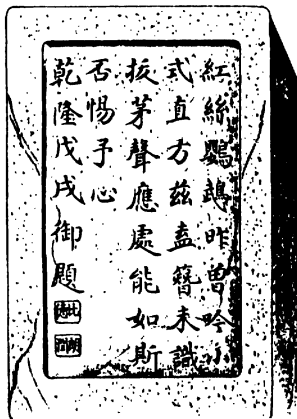 紅絲鸚鵡昨曾吟小
式直方茲盍簪未識
拔茅聲應處能如斯
否惕予心
乾隆戊戌御題